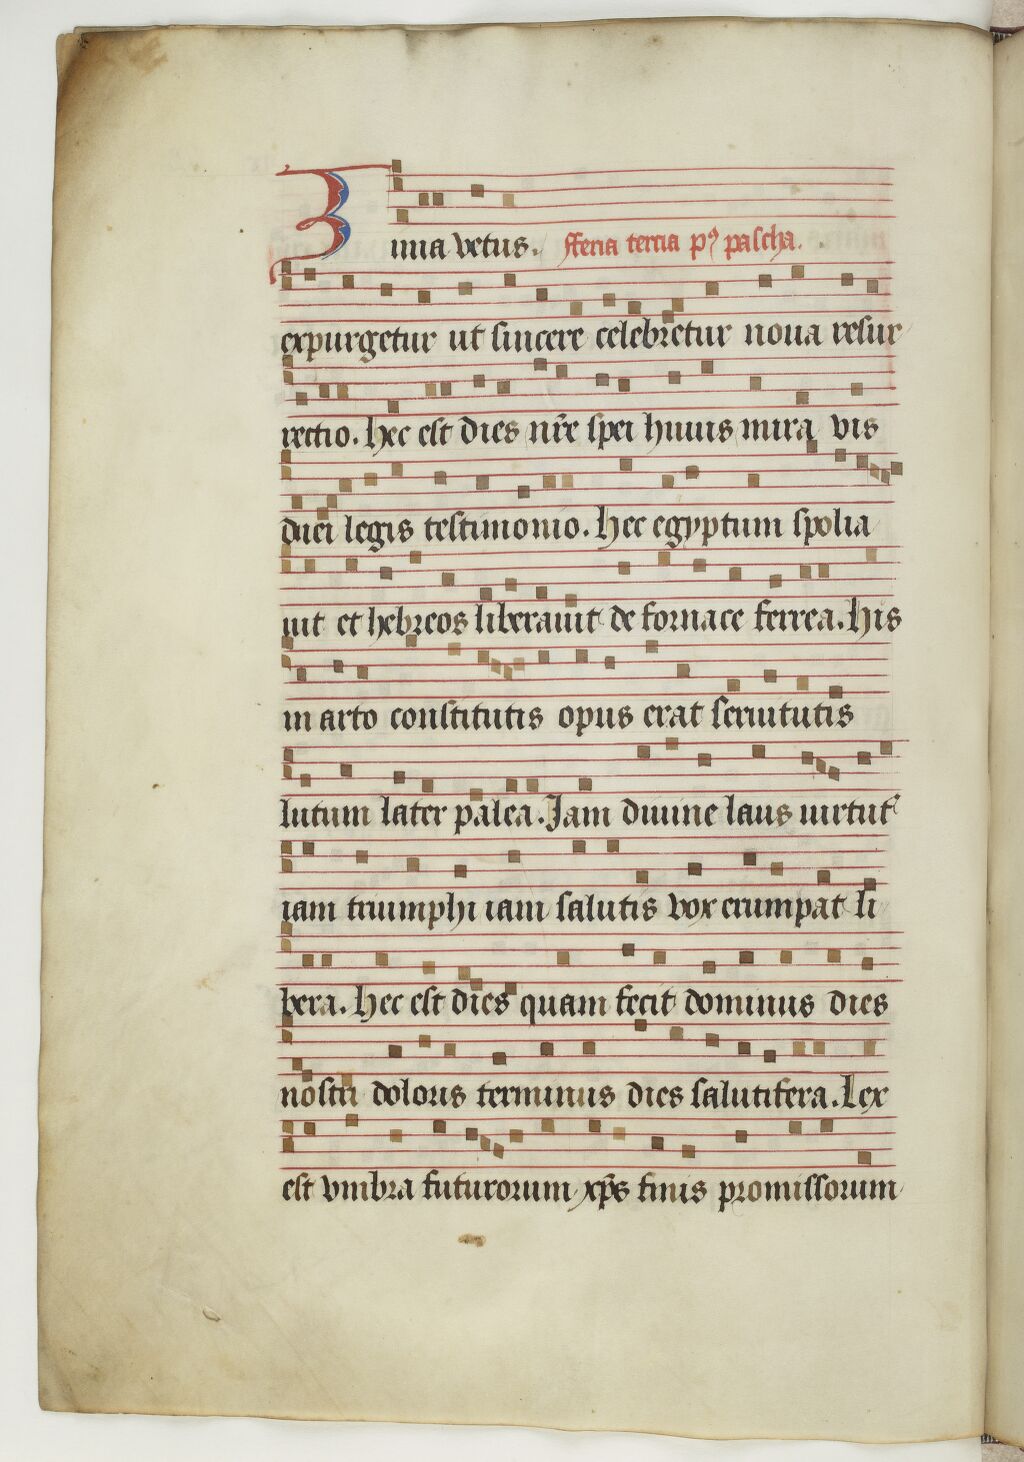 Zima vetus. fferia tercia p9 pascha.
expurgetur ut sincere celebretur noua resur
rectio. Hec est dies nr̄e spei huius mira vis
diei legis testimonio. Hec egyptum spolia
uit et hebreos liberauit de fornace ferrea. His
in arto constitutis opus erat seruitutis
lutum later palea. Jam diuine laus uirtut᾿
iam triumphi iam salutis vox erumpat li
bera. Hec est dies quam fecit dominus dies
nostri doloris terminus dies salutifera. Lex
est vmbra futurorum xp̄s finis promissorum